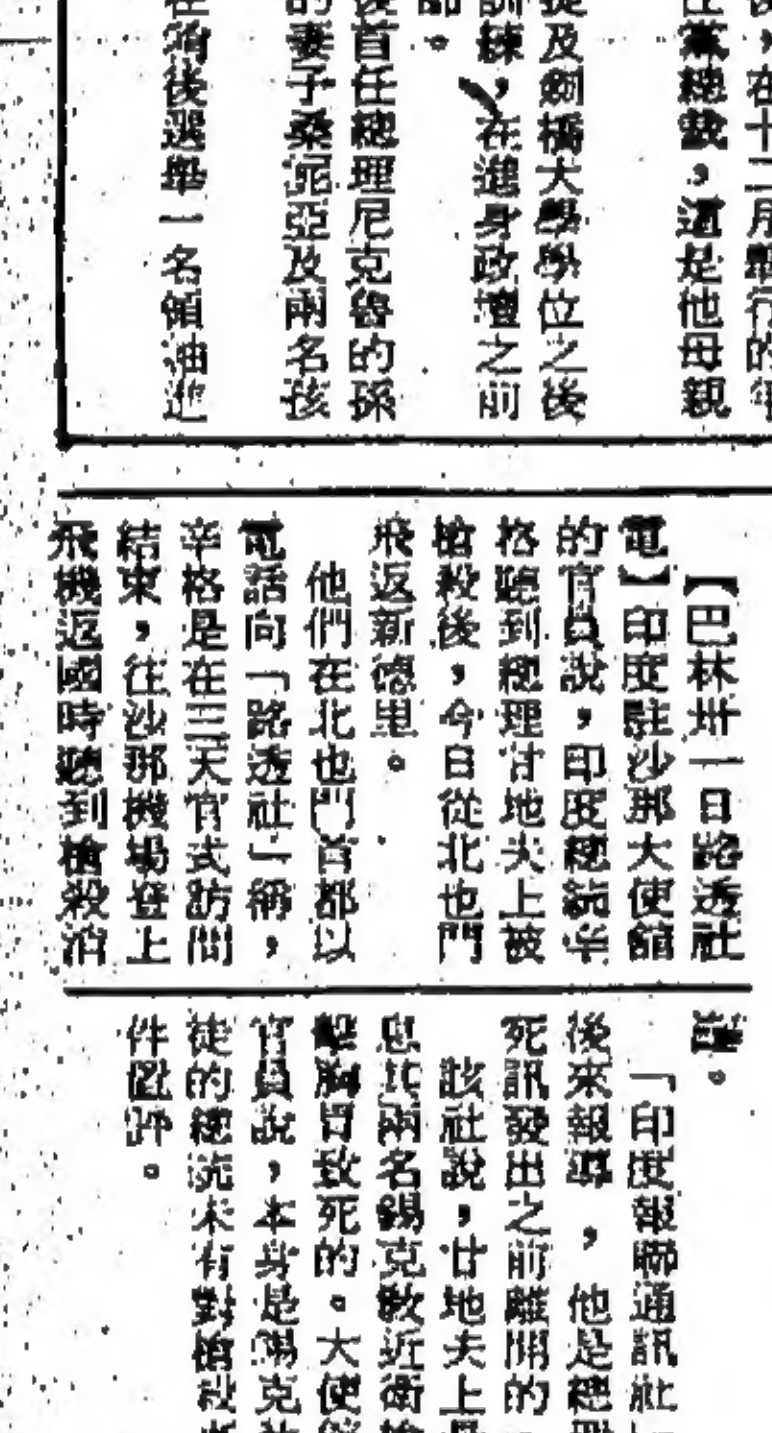 後，在十二月舉行的
任黨總裁，這是他母親
提及劍橋大學學位之後
訓練，在進身政壇之前
師。
後首任總理尼克魯的孫
的妻子桑妮亞及兩名孩
在稍後選舉一名領袖進
【巴林卅一日路透社
電】印度駐沙那大使館
的官員說，印度總統辛
格聽到總理甘地夫人被
槍殺後，今日從北也門
飛返新德里。
他們在北也門首都以
電話向「路透社」稱，
辛格是在三天官式訪問
結束，往沙那機場登上
飛機返國時聽到槍殺消
「印度報聯通訊社
後來報導，他是總理
死訊發出之前離開的
該社說，甘地夫人是
息其兩名錫克教近衛槍
擊胸胃致死的。大使館
官員說，本身是錫克教
徒的總統未有對槍殺
件置評。